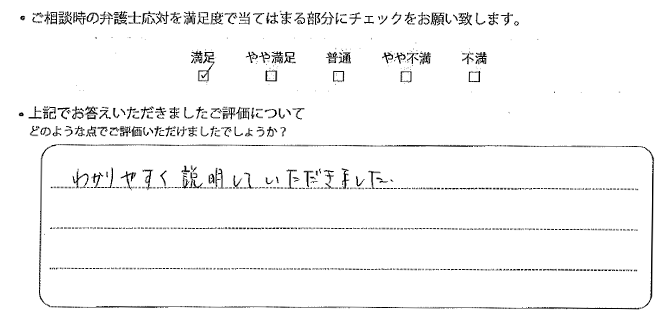 ・ご相談時の弁護士応対を満足度で当てはまる部分にチェックをお願い致します。
満足 やや満足 普通 やや不満 不満
☑ ☐ ☐ ☐ ☐
・上記でお答えいただきましたご評価について
どのような点でご評価いただけましたでしょうか？
わかりやすく説明していただきました。